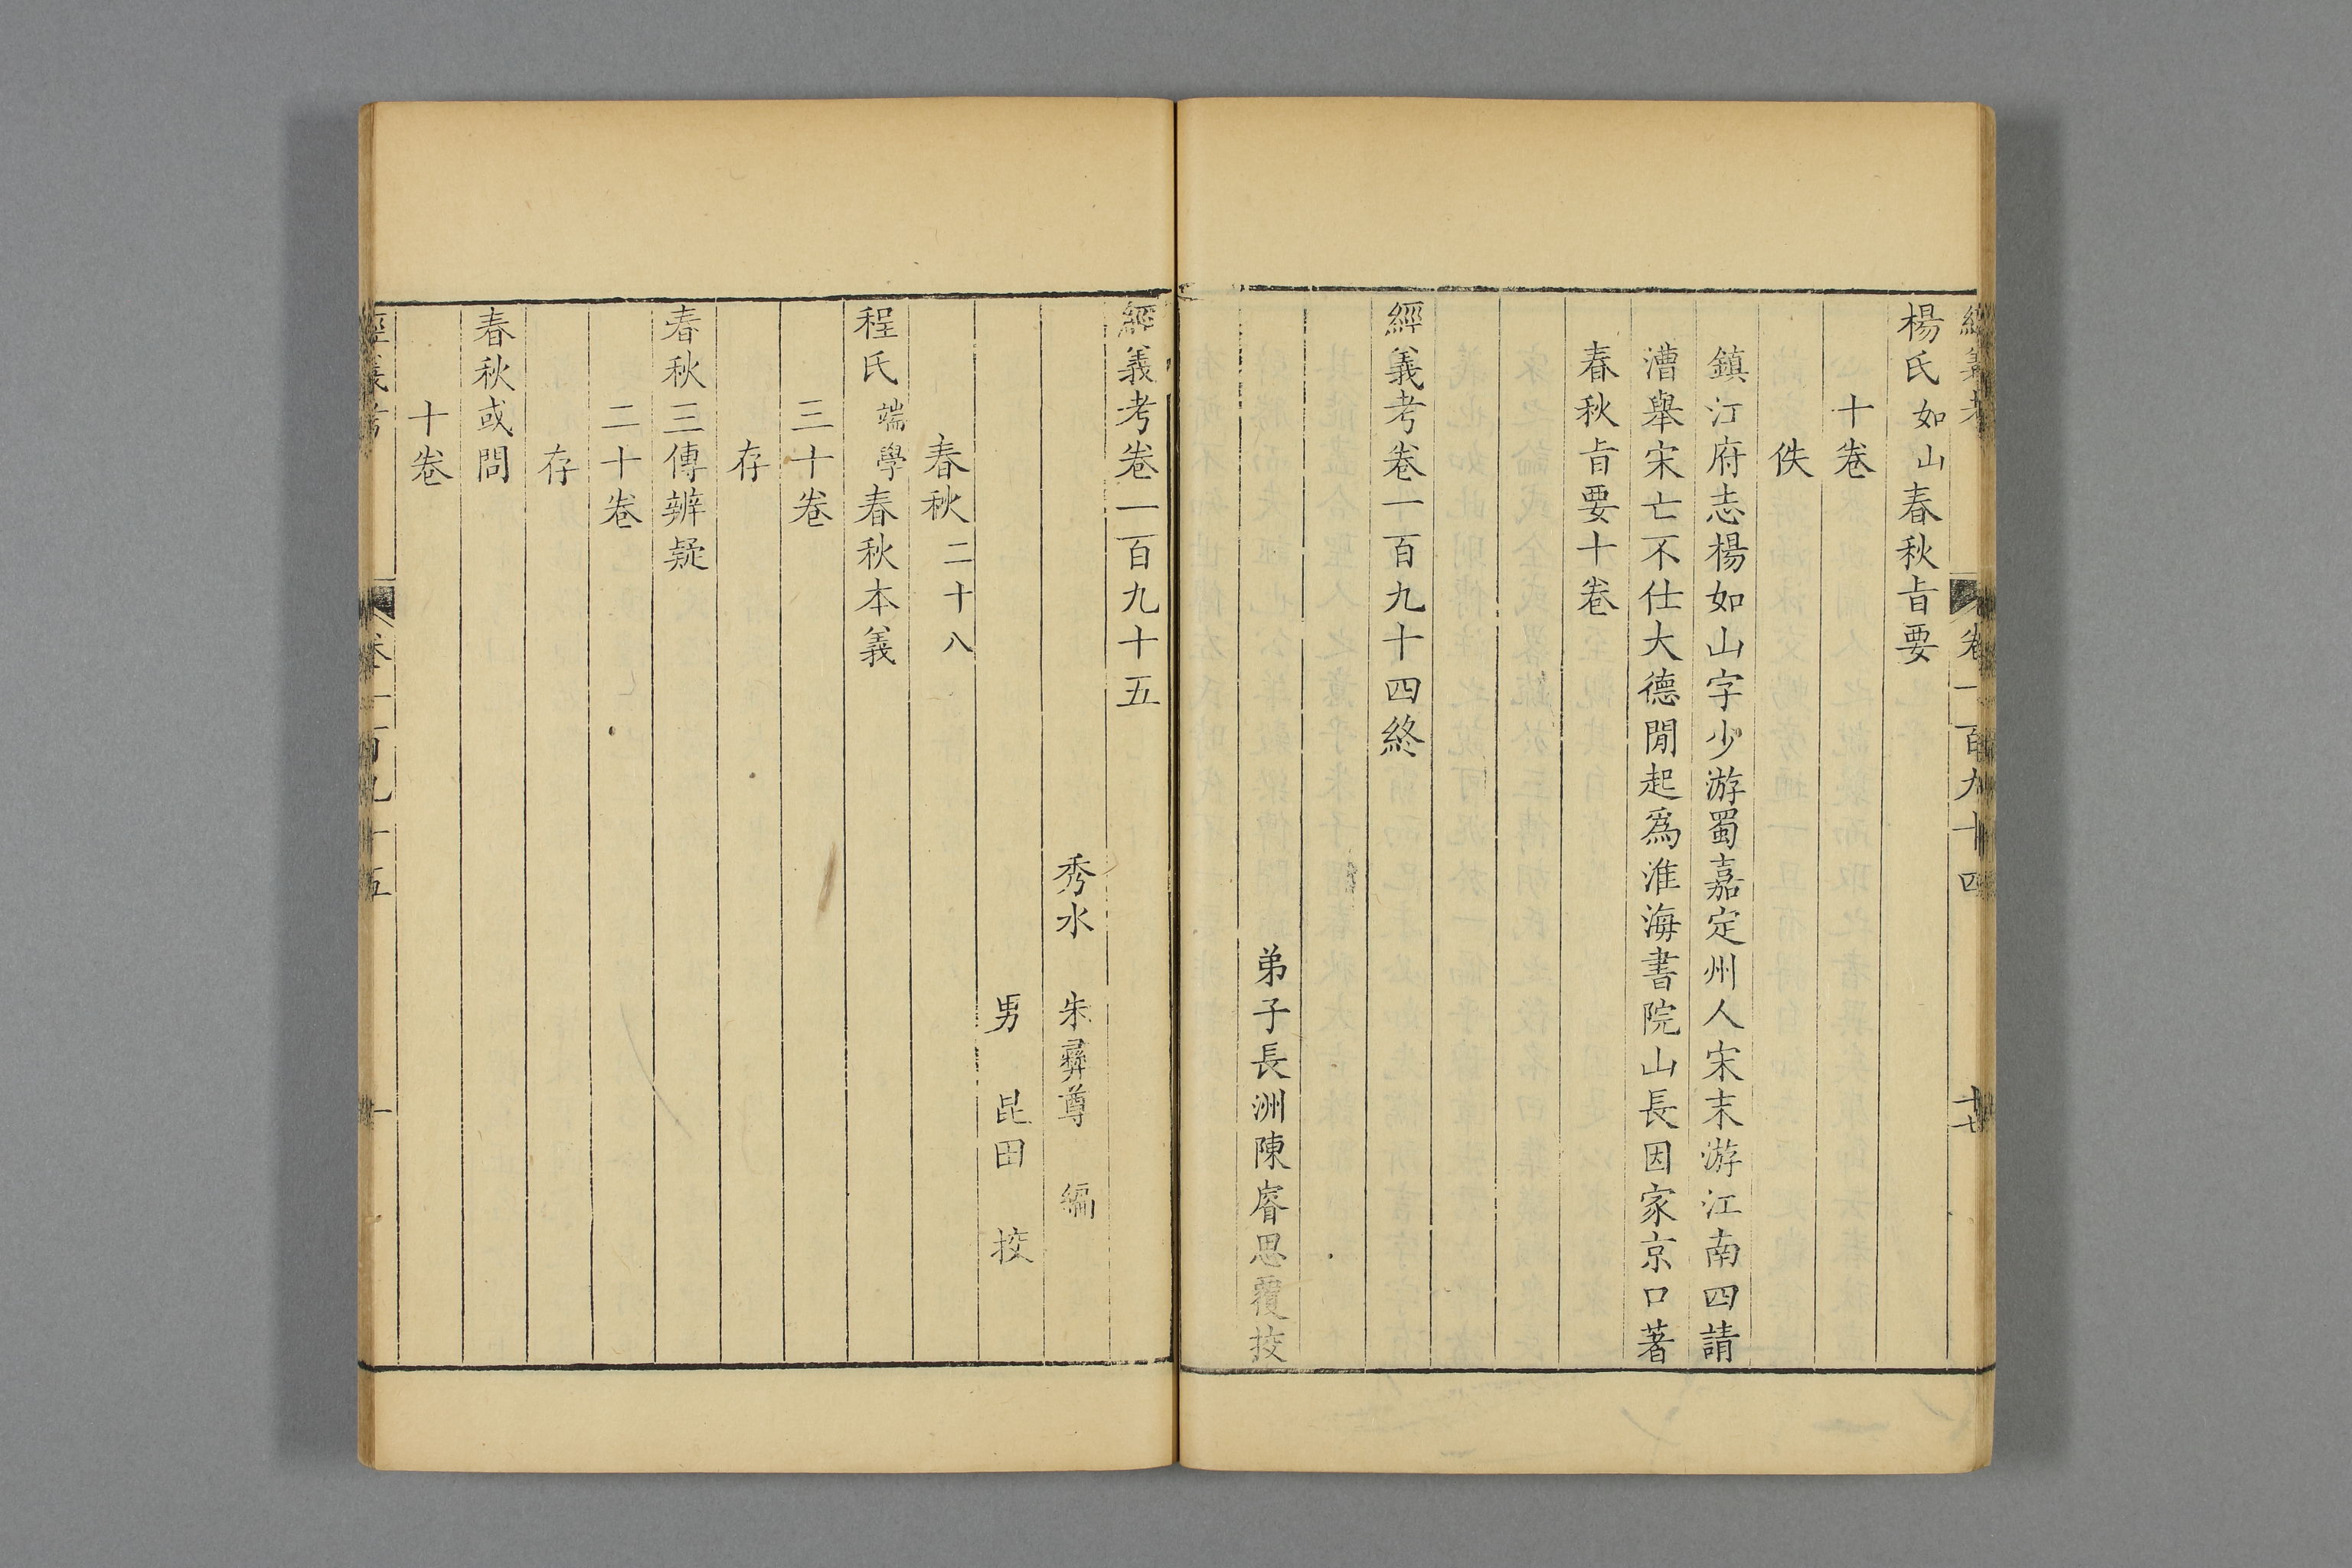 經義考 卷一百九十四 十七
楊氏如山春秋旨要
十卷
佚
鎮江府志楊如山字少游蜀嘉定州人宋末游江南四請
漕舉宋亡不仕大德閒起爲淮海書院山長因家京口著
春秋旨要十卷
經義考卷一百九十四終
弟子長洲陳睿思覆挍
經義考卷一百九十五
秀水 朱彝尊 編
男 昆田 挍
春秋二十八
程氏端學春秋本義
三十卷
存
春秋三傳辨疑
二十卷
存
春秋或問
十卷
經義考 卷一百九十五 一